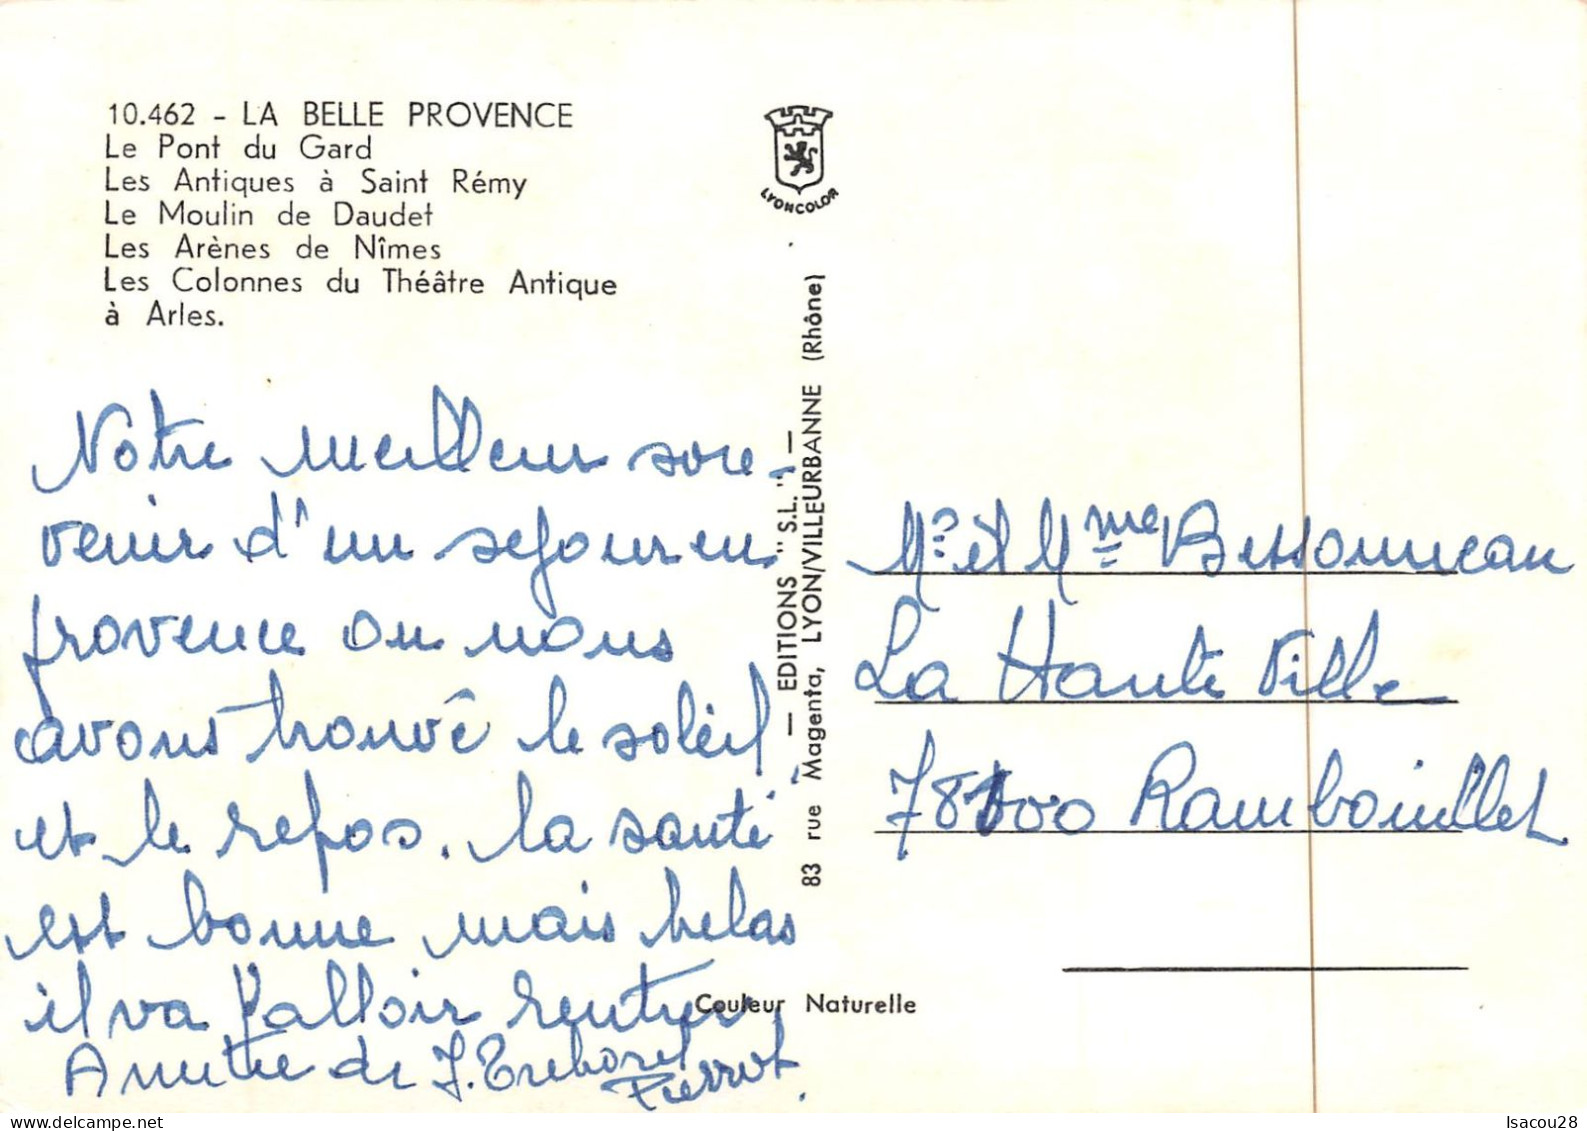 10.462 - LA BELLE PROVENCE
Le Pont du Gard
Les Antiques à Saint Rémy
Le Moulin de Daudet
Les Arènes de Nîmes
Les Colonnes du Théâtre Antique
à Arles.
LYONCOLOR
Notre meilleur sou-
venir d'un sejour en
provence ou nous
avons trouvé le soleil
et le repos. la santé
est bonne mais helas
il va falloir rentrer
Amitie de J.
Pierrot.
— EDITIONS "S.L." —
83 rue Magenta, LYON/VILLEURBANNE (Rhône)
Couleur Naturelle
Mr et Mme Bessonneau
La Haute Ville
78100 Rambouillet
Isacou28